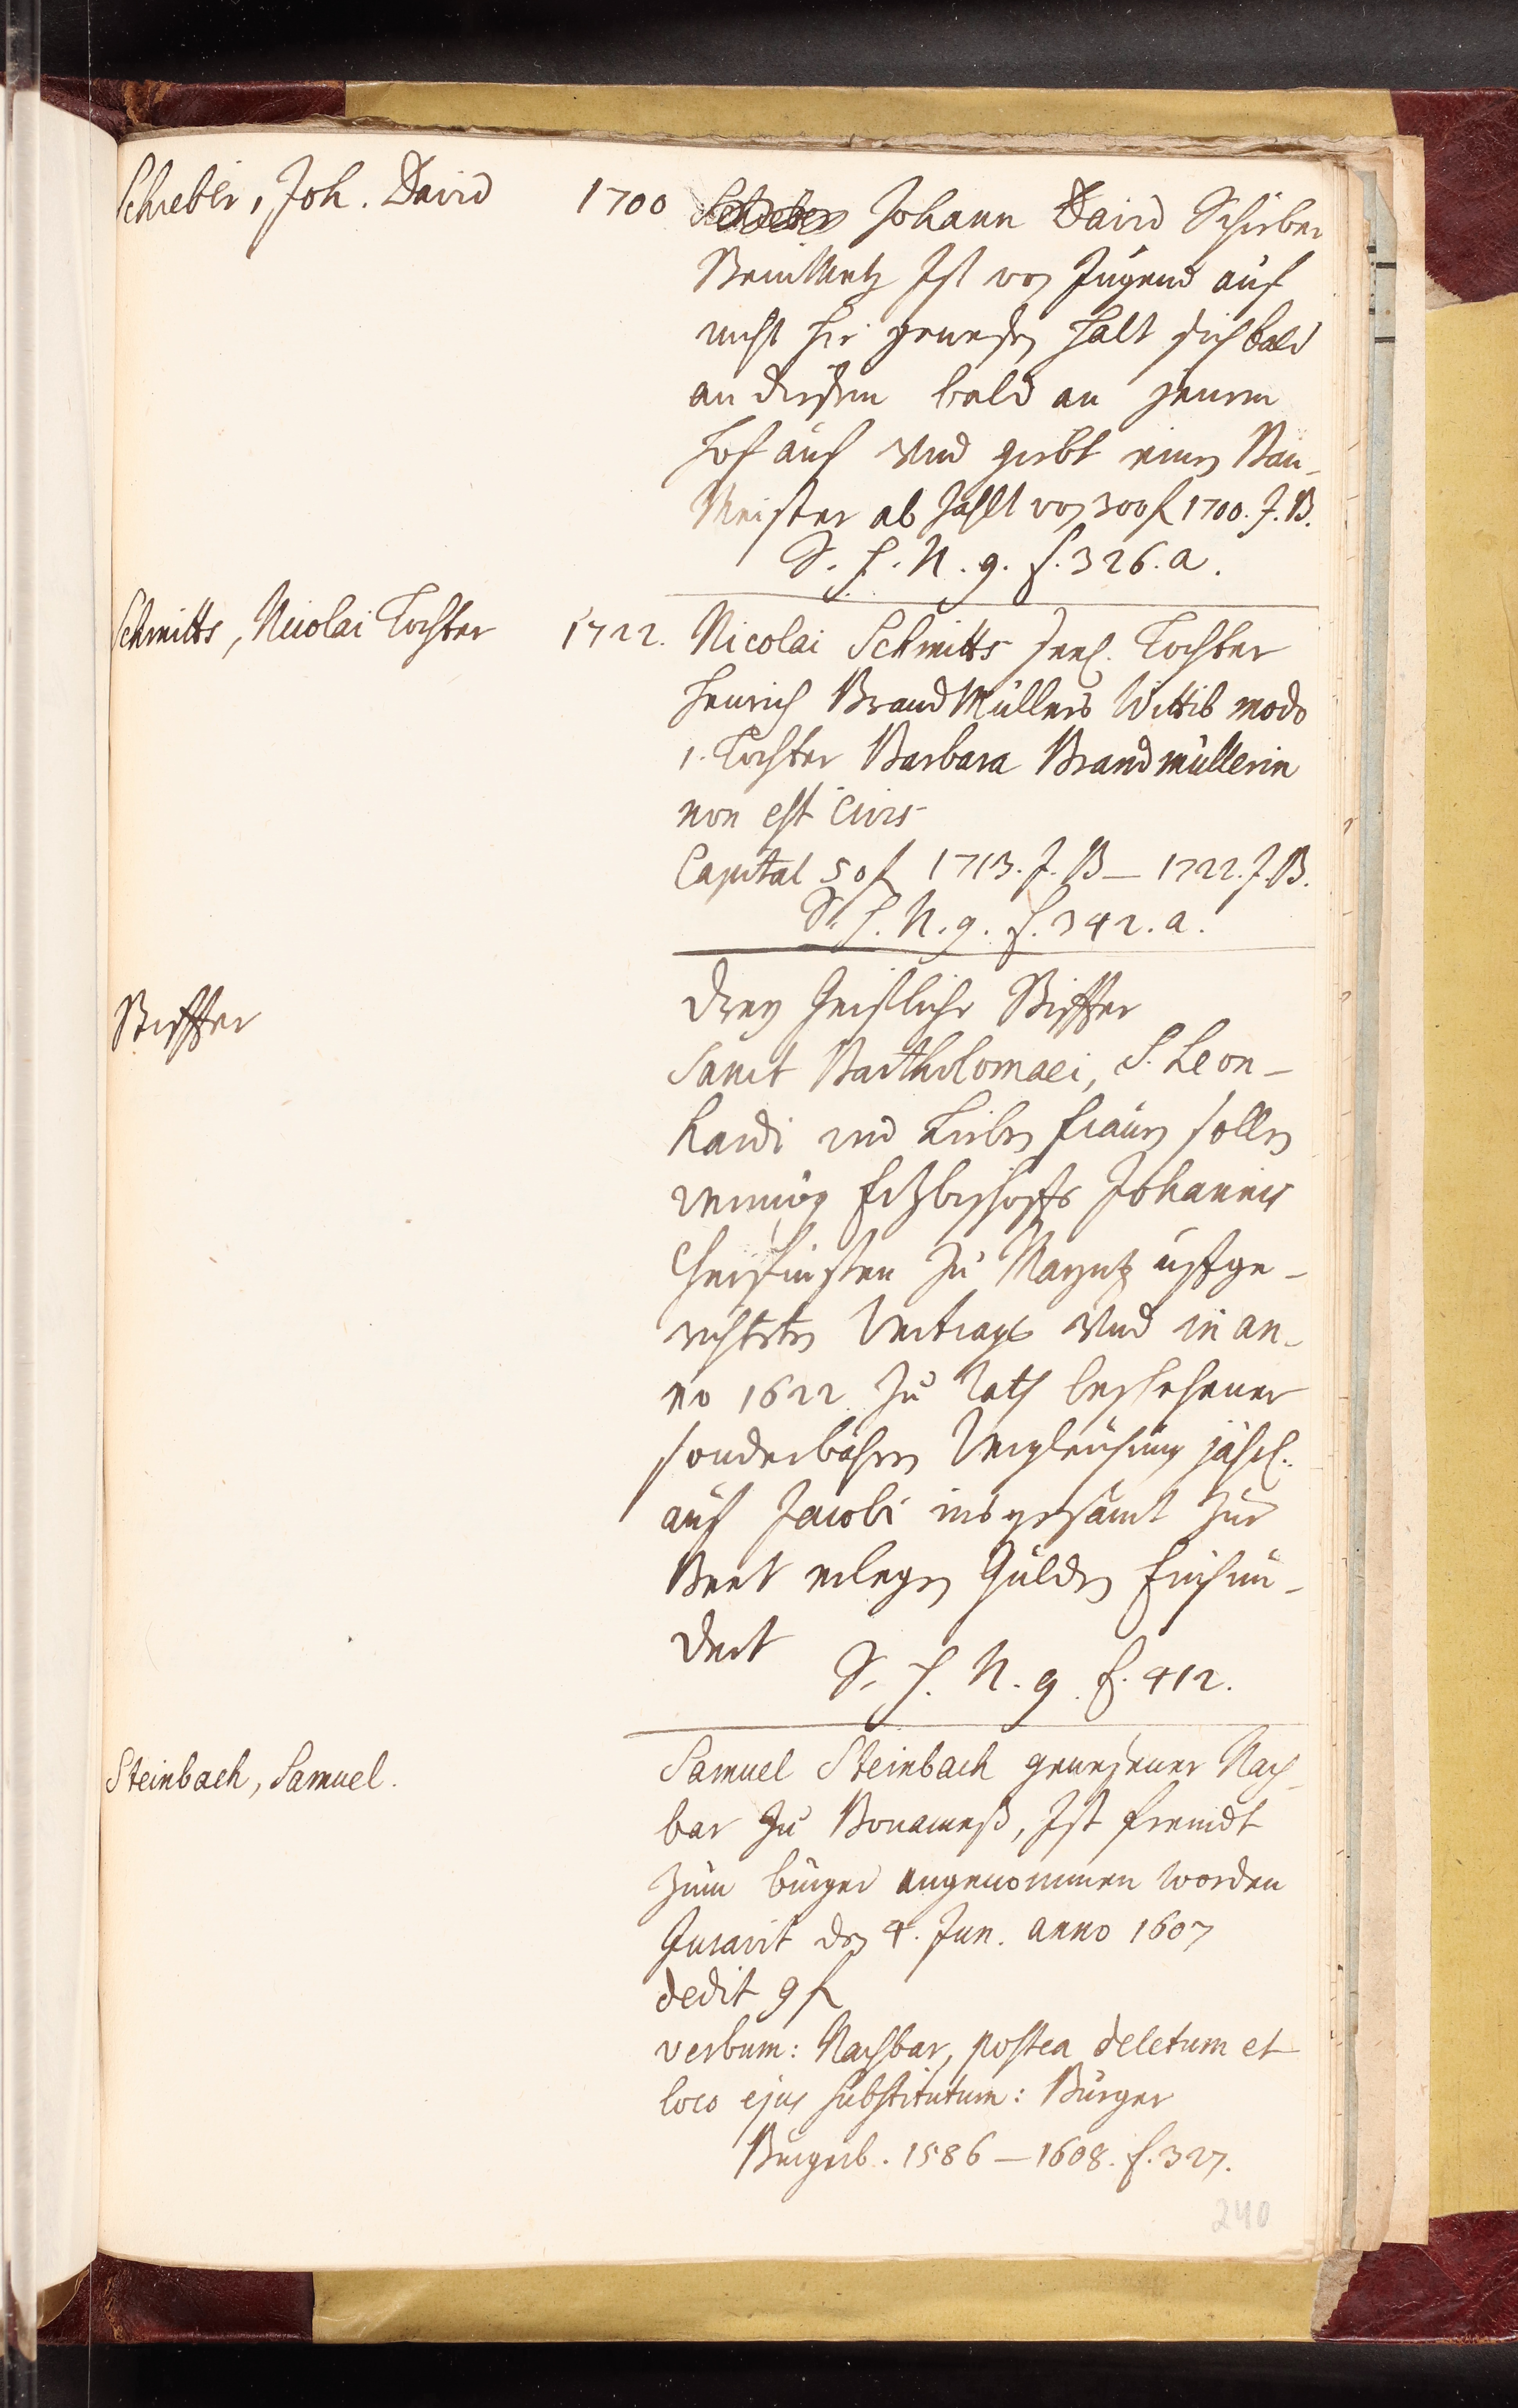 Schreber, Joh. David
1700 Johann David Schreber
Steinmetz Ist von Jugend auf
nicht hie gewesen halt sich bald
an diesem bald an jenem
Hof auf und giebt einen Bau-
Meister ab zahlt von 300 f 1700. J. B.
S. f. N. 9. f. 326. a.
Schmitts, Nicolai Tochter
1722. Nicolai Schmitts seel. Tochter
Henrich BrandMüllers Wittib modo
1. Tochter Barbara Brandmüllerin
non est Civis
Capital 50 f 1713. J. B — 1722. J. B.
S. f. N. 9. f. 342. a.
Stiffter
Drey Geistliche Stiffter
Sanct Bartholomaei, S. Leon-
hardi und Lieben Frauen sollen
vermög Ertzbischoffs Johannis
zu Mayntz uffge-
richteten Vertrags und in an-
no 1622 zu Rath beschehener
sonderbahren Vergleichung jährl.
auf Jacobi ins gesamt zur
Beet erlegen Gulden Einhun-
dert
S. f. N. 9. f. 412.
Steinbach, Samuel.
Samuel Steinbach gewesener Nach-
bar zu Bonameß, Ist frembdt
zum burger angenommen worden
Juravit den 4. Jun. anno 1607
dedit 9 f
verbum: Nachbar, postea deletum et
loco ejus substitutum: Burger
Burgerb. 1586 — 1608. f. 327.
240